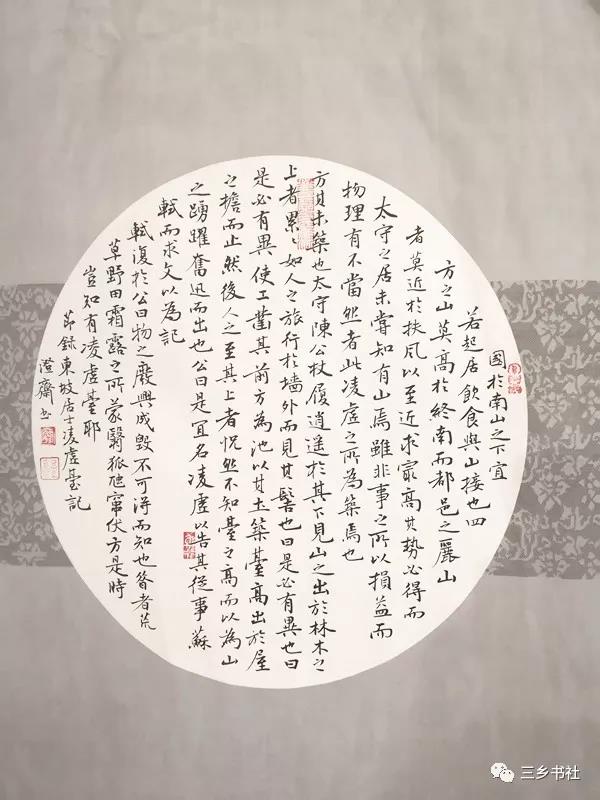 國於南山之下宜
若起居飲食與山接也四
方之山莫高於終南而都邑之麗山
者莫近於扶風以至近求最高其勢必得而
太守之居未嘗知有山焉雖非事之所以損益而
物理有不當然者此凌虛之所為築焉也
方其未築也太守陳公杖履逍遙於其下見山之出於林木之
上者累々如人之旅行於墻外而見其髻也曰是必有異也曰
是必有異使工鑿其前方為池以其土築臺高出於屋
之擔而止然後人之至其上者怳然不知臺之高而以為山
之踴躍奮迅而出也公曰是宜名凌虛以告其從事蘇
軾而求文以為記
軾復於公曰物之廢興成毀不可得而知也昝者荒
草野田霜露之所蒙翳狐虺竄伏方是時
豈知有凌虛臺耶
節錄東坡居士凌虛臺記
澄齋書
三乡书社